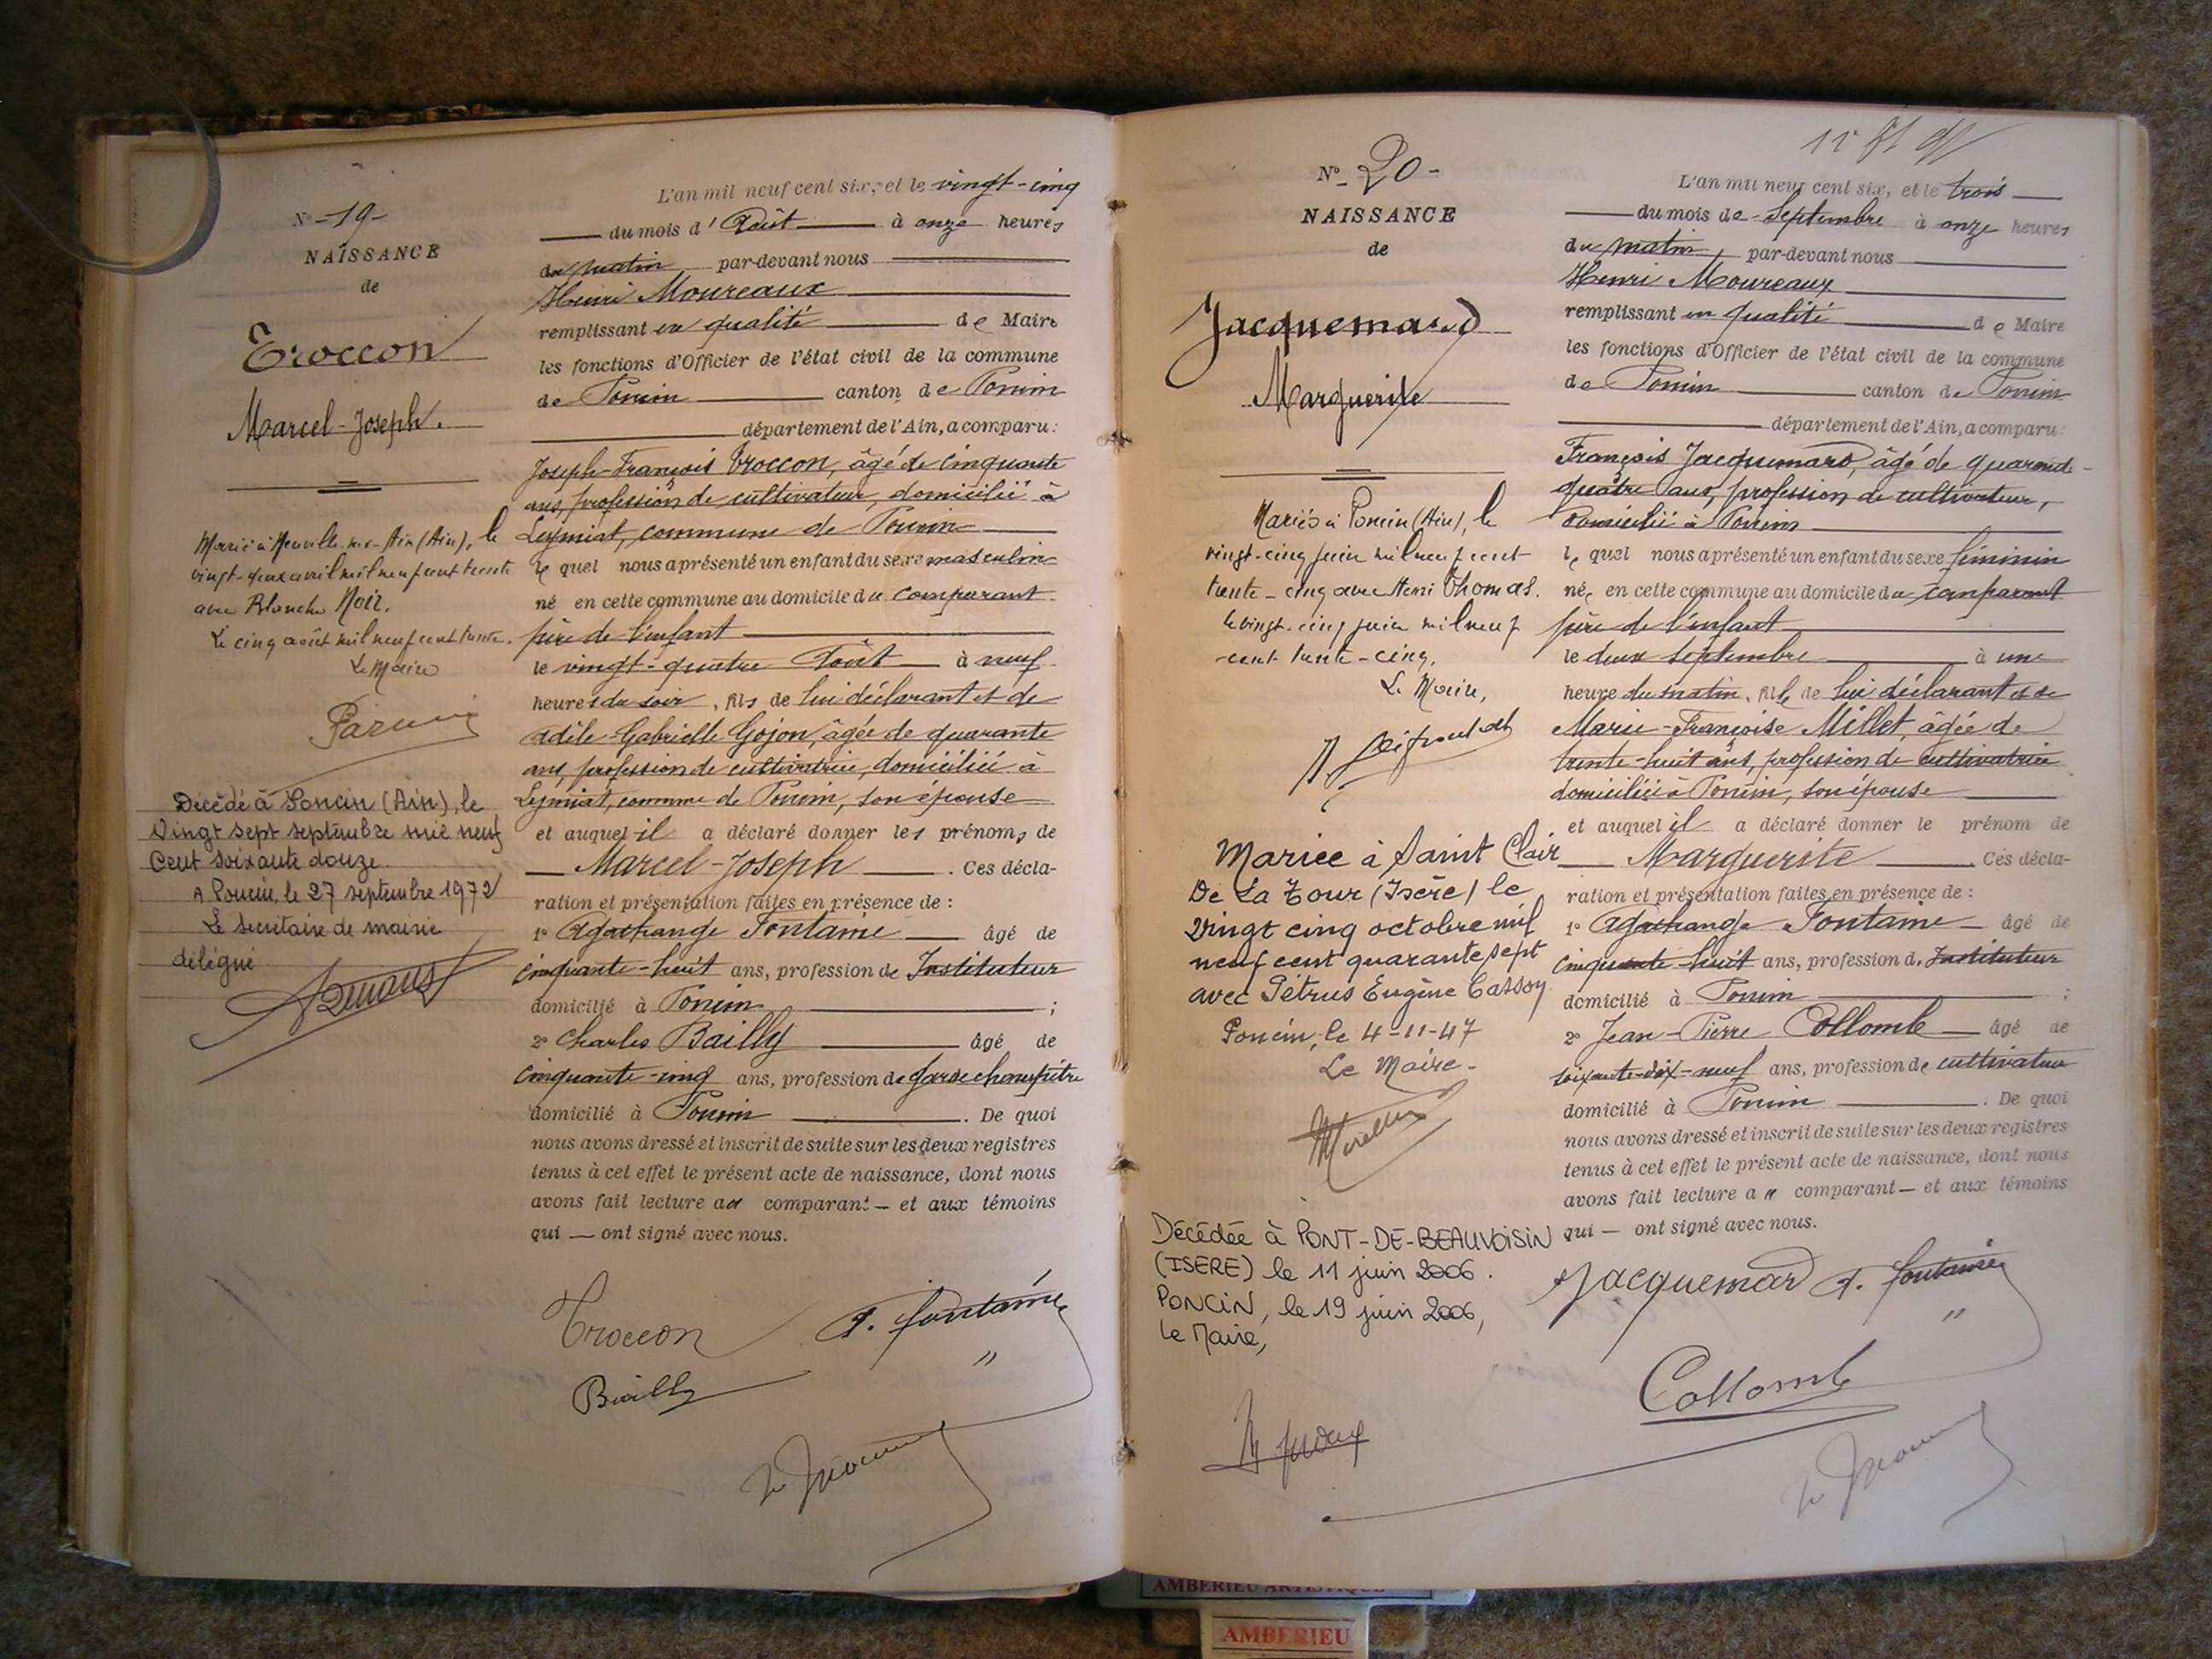 N° -19-
NAISSANCE
de
Troccon
Marcel-Joseph.
Marié à Neuville-sur-Ain (Ain), le
vingt-deux avril mil neuf cent trente
avec Blanche Noir.
Le cinq août mil neuf cent trente.
Le Maire
Décédé à Poncin (Ain), le
Vingt sept septembre mil neuf
Cent soixante douze.
A Poncin, le 27 septembre 1972
Le secrétaire de mairie
délégué
L'an mil neuf cent six, et le vingt-cinq
du mois d'Août à onze heures
du matin par-devant nous
Henri Moureaux
remplissant en qualité de Maire
les fonctions d'Officier de l'état civil de la commune
de Poncin canton de Poncin
département de l'Ain, a comparu :
Joseph-François Troccon, âgé de cinquante
ans, profession de cultivateur, domicilié à
Leymiat, commune de Poncin
le quel nous a présenté un enfant du sexe masculin
né en cette commune au domicile du comparant
père de l'enfant
le vingt-quatre Août à neuf
heures du soir, fils de lui déclarant et de
Adèle-Gabrielle Gojon, âgée de quarante
ans, profession de cultivatrice, domiciliée à
Leymiat, commune de Poncin, son épouse
et auquel il a déclaré donner les prénoms de
Marcel-Joseph. Ces décla-
ration et présentation faites en présence de :
1° Agathange Fontaine âgé de
cinquante-huit ans, profession de Instituteur
domicilié à Poncin ;
2° Charles Bailly âgé de
cinquante-cinq ans, profession de garde champêtre
domicilié à Poncin. De quoi
nous avons dressé et inscrit de suite sur les deux registres
tenus à cet effet le présent acte de naissance, dont nous
avons fait lecture au comparant — et aux témoins
qui — ont signé avec nous.
Troccon A. Fontaine
Bailly
N° 20-
NAISSANCE
de
Jacquemard
Marguerite
Mariés à Poncin (Ain), le
vingt-cinq juin mil neuf cent
trente-cinq avec Henri Thomas.
le vingt-cinq juin mil neuf
cent trente-cinq.
Le Maire,
Mariée à Saint Clair
De La Tour (Isère) le
Vingt cinq octobre mil
neuf cent quarante sept
avec Pétrus Eugène Cassoy
Poncin, le 4-11-47
Le Maire.
Décédée à PONT-DE-BEAUVOISIN
(ISERE) le 11 juin 2006.
PONCIN, le 19 juin 2006,
Le Maire,
L'an mil neuf cent six, et le trois
du mois de Septembre à onze heures
du matin, par-devant nous
Henri Moureaux
remplissant en qualité de Maire
les fonctions d'Officier de l'état civil de la commune
de Poncin canton de Poncin
département de l'Ain, a comparu :
François Jacquemard, âgé de quarante-
quatre ans, profession de cultivateur,
domicilié à Poncin
le quel nous a présenté un enfant du sexe féminin
née en cette commune au domicile du comparant
père de l'enfant
le deux septembre à une
heure du matin, fille de lui déclarant et de
Marie-Françoise Millet, âgée de
trente-huit ans, profession de cultivatrice
domiciliée à Poncin, son épouse
et auquel il a déclaré donner le prénom de
Marguerite. Ces décla-
ration et présentation faites en présence de :
1° Agathange Fontaine âgé de
cinquante-huit ans, profession d. Instituteur
domicilié à Poncin ;
2° Jean-Pierre Collomb âgé de
soixante-dix-neuf ans, profession de cultivateur
domicilié à Poncin. De quoi
nous avons dressé et inscrit de suite sur les deux registres
tenus à cet effet le présent acte de naissance, dont nous
avons fait lecture au comparant — et aux témoins
qui — ont signé avec nous.
Jacquemard A. Fontaine
Collomb
AMBERIEU ARTISTIQUE
AMBERIEU